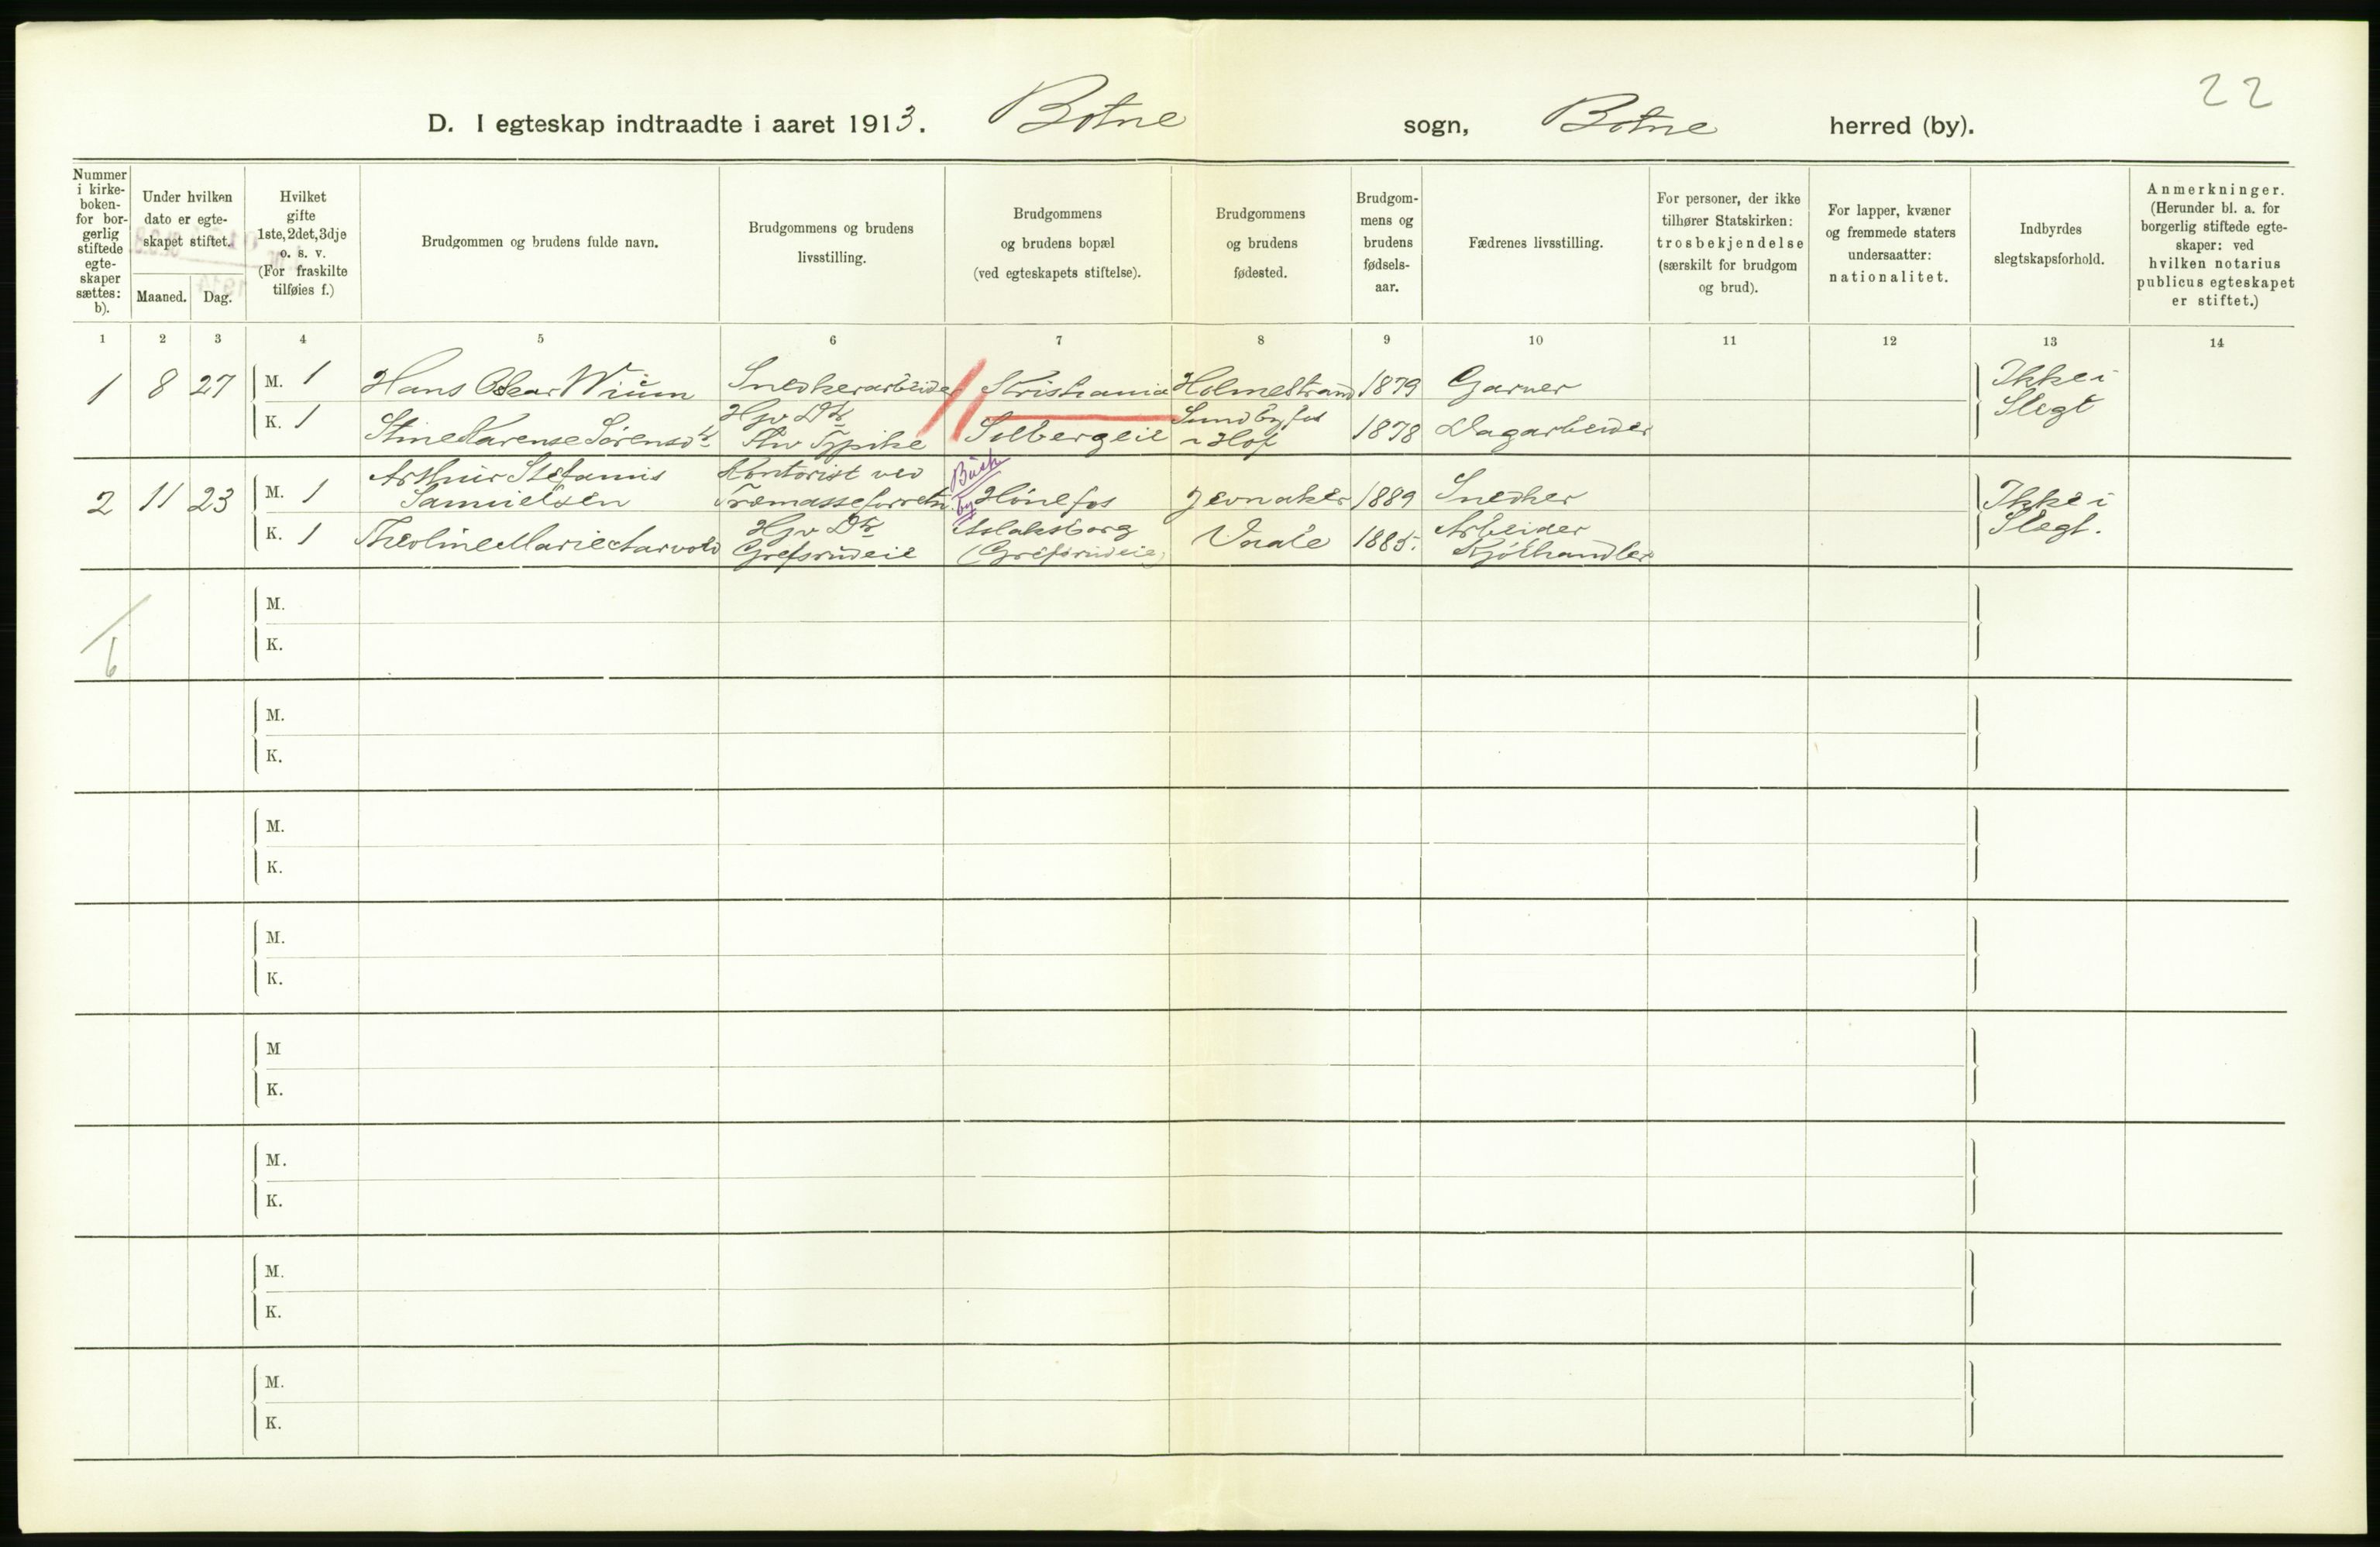 22
D. I egteskap indtraadte i aaret 1913. Botne sogn, Botne herred (by).
Nummer i kirke-boken- for bor-gerlig stiftede egte-skaper sættes: b).
Under hvilken dato er egte-skapet stiftet.
Maaned. Dag.
Hvilket gifte 1ste, 2det, 3dje o. s. v. (For fraskilte tilføies f.)
Brudgommen og brudens fulde navn.
Brudgommens og brudens livsstilling.
Brudgommens og brudens bopæl (ved egteskapets stiftelse).
Brudgommens og brudens fødested.
Brudgom-mens og brudens fødsels-aar.
Fædrenes livsstilling.
For personer, der ikke tilhører Statskirken: trosbekjendelse (særskilt for brudgom og brud).
For lapper, kvæner og fremmede staters undersaatter: nationalitet.
Indbyrdes slegtskapsforhold.
Anmerkninger. (Herunder bl. a. for borgerlig stiftede egte-skaper: ved hvilken notarius publicus egteskapet er stiftet.)
1 2 3 4 5 6 7 8 9 10 11 12 13 14
1 8 27 M. 1 Hans Oskar Wium Snedkerarbeider Kristiania Holmestrand 1879 Garver Ikke i Slegt
K. 1 Stine Karense Sørensdtr Hjv Dtr Solbergeie Sundbyfos i Hof 1878 Dagarbeider
2 11 23 M. 1 Arthur Stefanus Samuelsen Kontorist ved Træmasseforretn. Hönefos Jevnaker 1889 Snedker Ikke i Slegt.
K. 1 Theoline Marie Aarvold Hjv Dtr Grefsrudeie Aslaksborg (Grefsrudeie) Vaale 1885. Arbeider Kjöthandler
M.
K.
M.
K.
M.
K.
M.
K.
M
K.
M.
K.
M.
K.
M.
K.